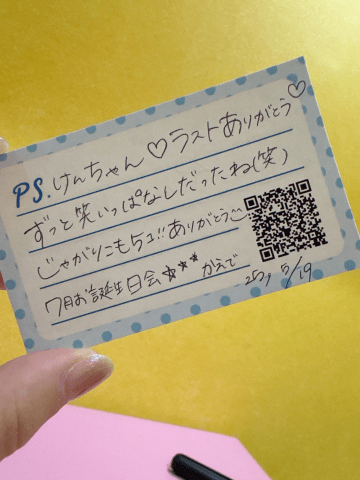 PS. けんちゃん♡ラストありがとう♡
ずっと笑いっぱなしだったね(笑)
じゃがりこも5コ!!ありがとう
7月お誕生日会★★★ かえで
5/19